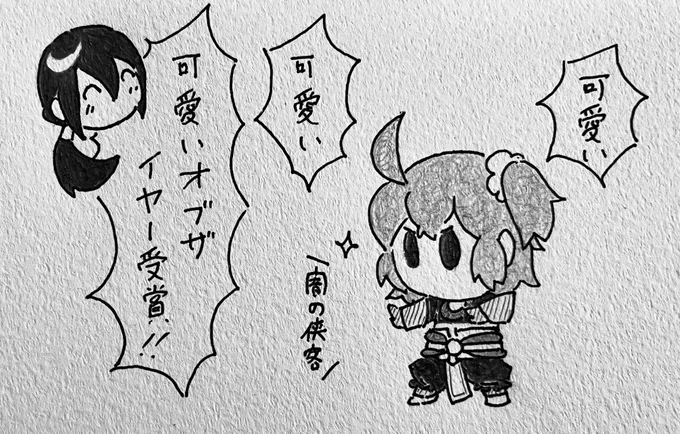 可愛い
可愛い
可愛いオブザ
イヤー受賞!!
闇の侠客